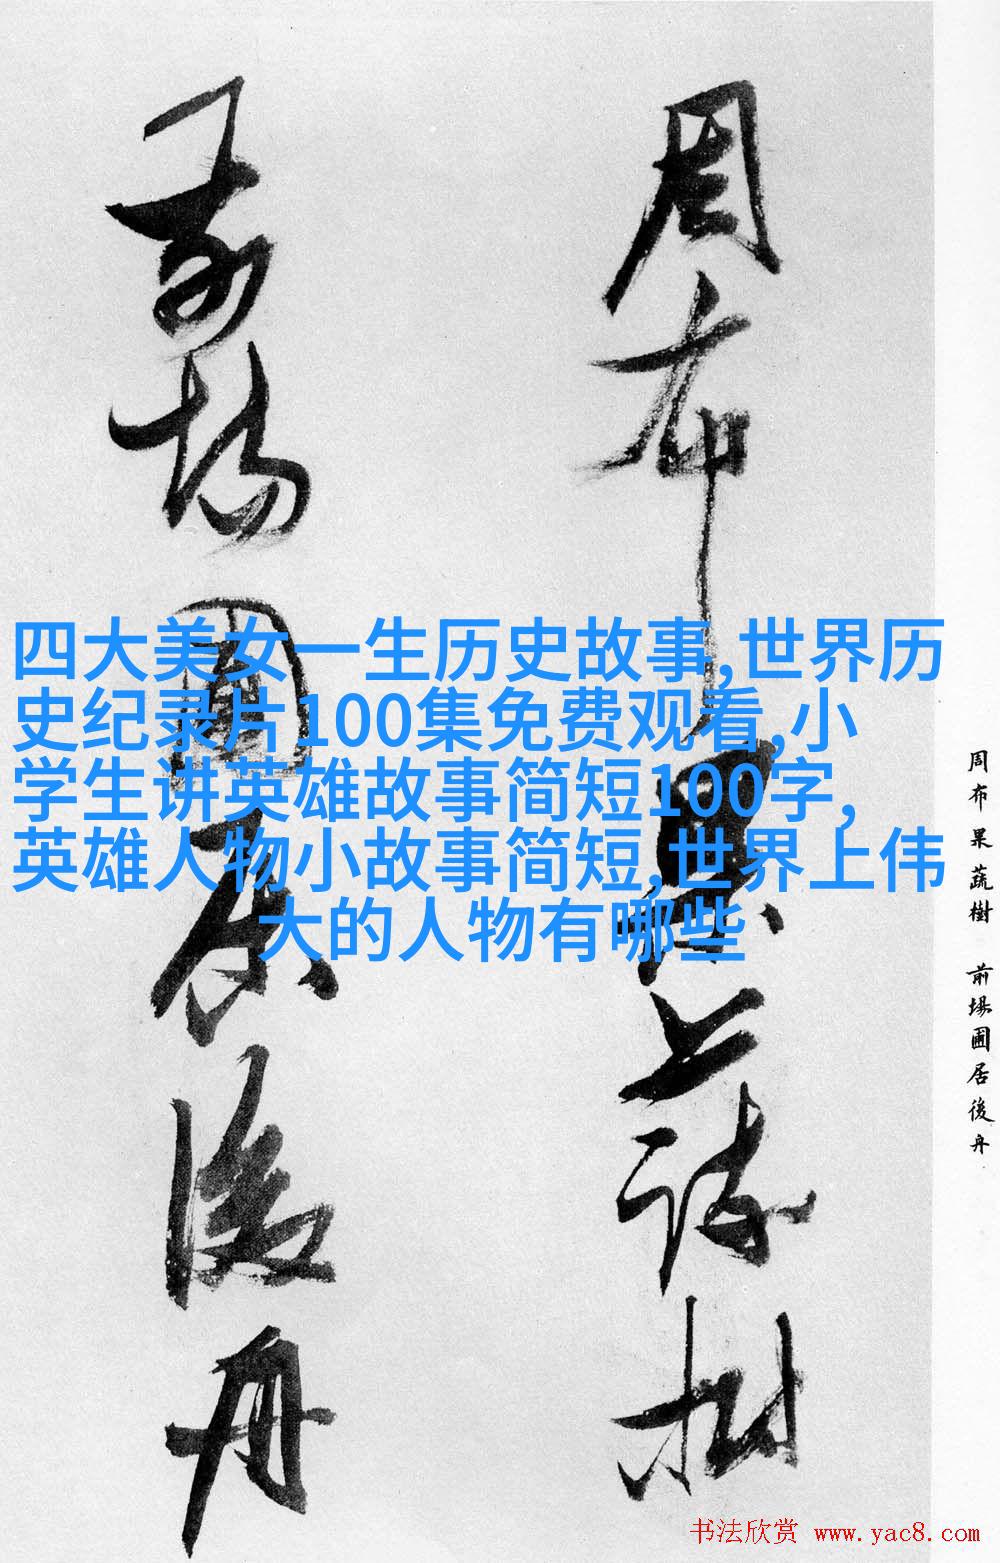 周布果蔬樹
前場圃居後舟
四大美女一生历史故事,世界历
史纪录片100集免费观看,小
学生讲英雄故事简短100字,
英雄人物小故事简短,世界上伟
大的人物有哪些
周布果蔬樹 前場圃居後舟
书法欣赏 www.yac8.com